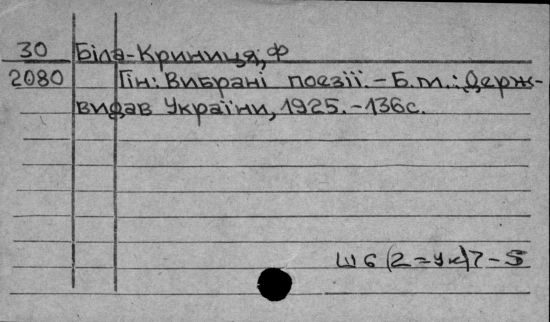 30 Біла-Криниця, Ф
2080 Гін: Вибрані поезії. - Б.м.: Держ-
видав України, 1925. - 136с.
Ш6(2=Ук)7-5